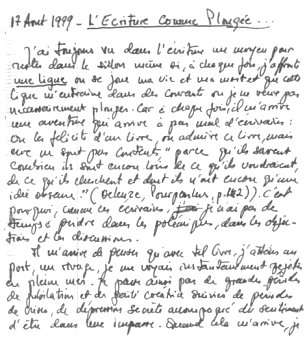 17 Aout 1999 - L'Ecriture Comme Plongée...
J'ai toujours vu dans l'écriture un moyen pour
rester dans le sillon même si, à chaque fois, j'affronte
une ligne où se joue ma vie et ma mort et que cette
ligne m'entraîne dans des courants où je ne veux pas
nécessairement plonger. Car à chaque fois, il m'arrive
une aventure qui arrive à pas mal d'écrivains:
On les félicite d'un livre, on admire ce livre, mais
eux ne sont pas contents " parce qu'ils savent
combien ils sont encore loin de ce qu'ils voudraient,
de ce qu'ils cherchent et dont ils n'ont encore qu'une
idée obscure." (Deleuze, Pourparlers, p. ) C'est
pourquoi, comme ces écrivains, je n'ai pas de
temps à perdre dans les polémiques, dans les objec-
tions et les discussions.
Il m'arrive de penser qu'avec tel livre, j'atteins au
port, un rivage, je me voyais instantanément rejetée
en pleine mer. Je passe ainsi par de grandes périodes
de jubilation et de créativité suivies de périodes
de crise, de dépression secrète accompagnée du sentiment
d'être dans une impasse. Quand cela m'arrive, je